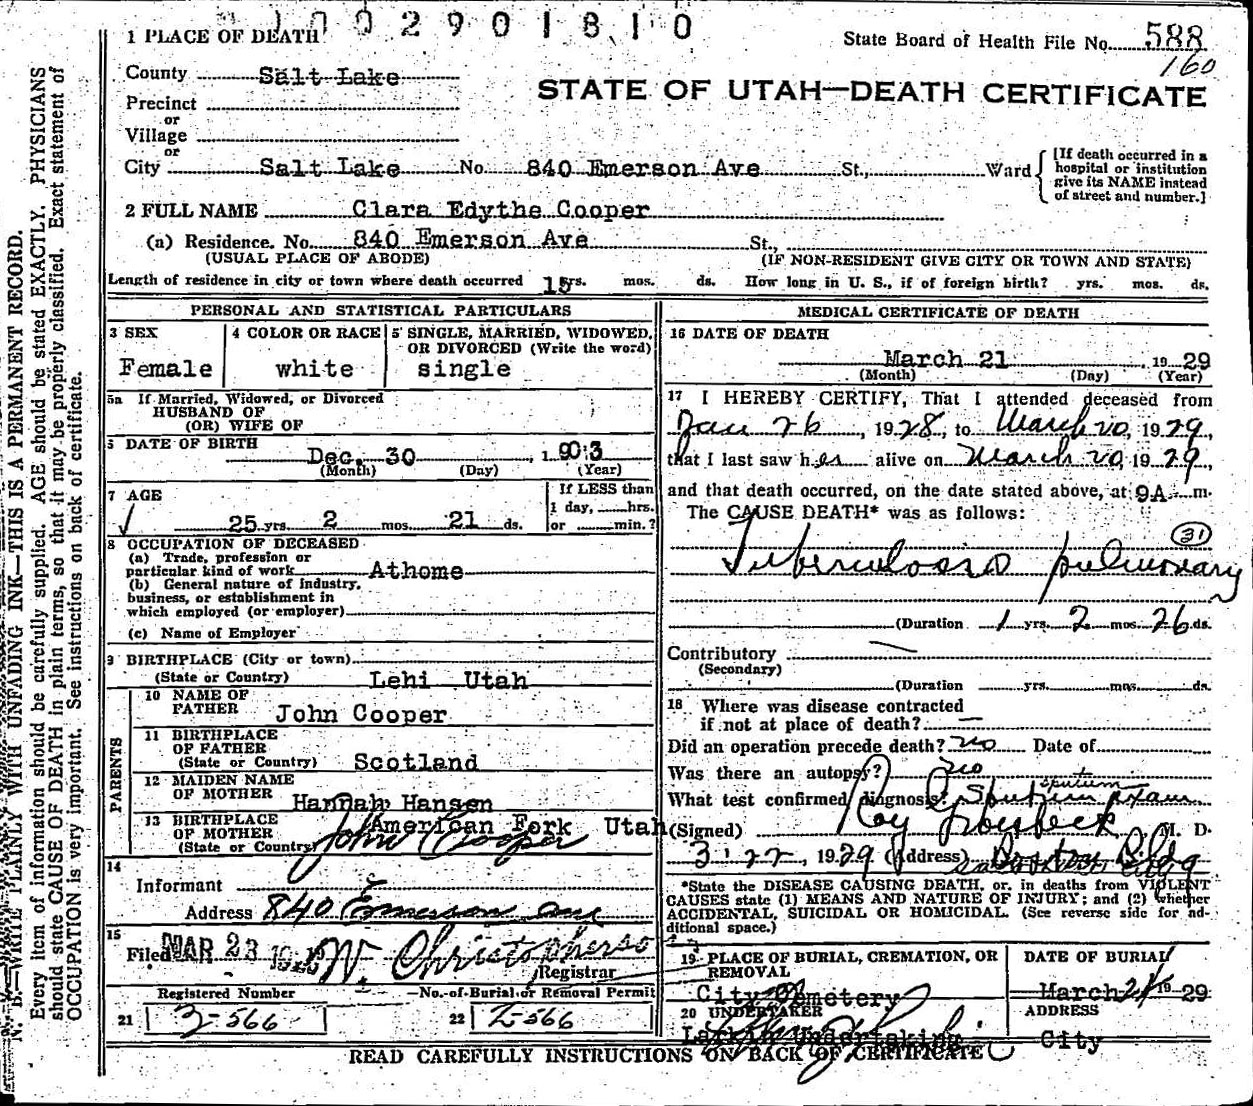 1002901810
1 PLACE OF DEATH
State Board of Health File No. 588
160
County Salt Lake
STATE OF UTAH—DEATH CERTIFICATE
Precinct
or
Village
or
City Salt Lake No. 840 Emerson Ave St., Ward
[If death occurred in a
hospital or institution
give its NAME instead
of street and number.]
2 FULL NAME Clara Edythe Cooper
(a) Residence. No. 840 Emerson Ave St.,
(USUAL PLACE OF ABODE) (IF NON-RESIDENT GIVE CITY OR TOWN AND STATE)
Length of residence in city or town where death occurred 15 yrs. mos. ds. How long in U. S., if of foreign birth? yrs. mos. ds.
PERSONAL AND STATISTICAL PARTICULARS
3 SEX
Female
4 COLOR OR RACE
white
5 SINGLE, MARRIED, WIDOWED,
OR DIVORCED (Write the word)
single
5a If Married, Widowed, or Divorced
HUSBAND OF
(OR) WIFE OF
6 DATE OF BIRTH
Dec. 30 , 1903
(Month) (Day) (Year)
7 AGE
25 yrs. 2 mos. 21 ds.
If LESS than
1 day, hrs.
or min.?
8 OCCUPATION OF DECEASED
(a) Trade, profession or
particular kind of work Athome
(b) General nature of industry,
business, or establishment in
which employed (or employer)
(c) Name of Employer
9 BIRTHPLACE (City or town)
(State or Country) Lehi Utah
PARENTS
10 NAME OF
FATHER John Cooper
11 BIRTHPLACE
OF FATHER
(State or Country) Scotland
12 MAIDEN NAME
OF MOTHER Hannah Hansen
13 BIRTHPLACE
OF MOTHER American Fork Utah
(State or Country)
14 John Cooper
Informant
Address 840 Emerson ave
15
Filed MAR 23 19
W. Christopherso
Registrar
Registered Number No. of Burial or Removal Permit
21 Z-566 22 Z-566
MEDICAL CERTIFICATE OF DEATH
16 DATE OF DEATH
March 21 , 1929
(Month) (Day) (Year)
17 I HEREBY CERTIFY, That I attended deceased from
Jan 26, 1928, to March 20, 1929,
that I last saw her alive on March 20, 1929,
and that death occurred, on the date stated above, at 9A m.
The CAUSE DEATH* was as follows:
31
Tuberculosis pulmonary
(Duration 1 yrs. 2 mos. 26 ds.
Contributory —
(Secondary)
(Duration yrs. mos. ds.
18 Where was disease contracted
if not at place of death? —
Did an operation precede death? no Date of
Was there an autopsy? no
sputum
What test confirmed diagnosis? Sputum exam
(Signed) Roy Groesbeck, M. D.
3-22, 1929 (Address) Boston Bldg
*State the DISEASE CAUSING DEATH, or, in deaths from VIOLENT
CAUSES state (1) MEANS AND NATURE OF INJURY; and (2) whether
ACCIDENTAL, SUICIDAL OR HOMICIDAL. (See reverse side for ad-
ditional space.)
19 PLACE OF BURIAL, CREMATION, OR
REMOVAL
City Cemetery
DATE OF BURIAL
March 1929
20 UNDERTAKER
Larkin Undertaking
ADDRESS
City
READ CAREFULLY INSTRUCTIONS ON BACK OF CERTIFICATE
N. B.—WRITE PLAINLY WITH UNFADING INK—THIS IS A PERMANENT RECORD.
Every item of information should be carefully supplied. AGE should be stated EXACTLY. PHYSICIANS
should state CAUSE OF DEATH in plain terms, so that it may be properly classified. Exact statement of
OCCUPATION is very important. See instructions on back of certificate.